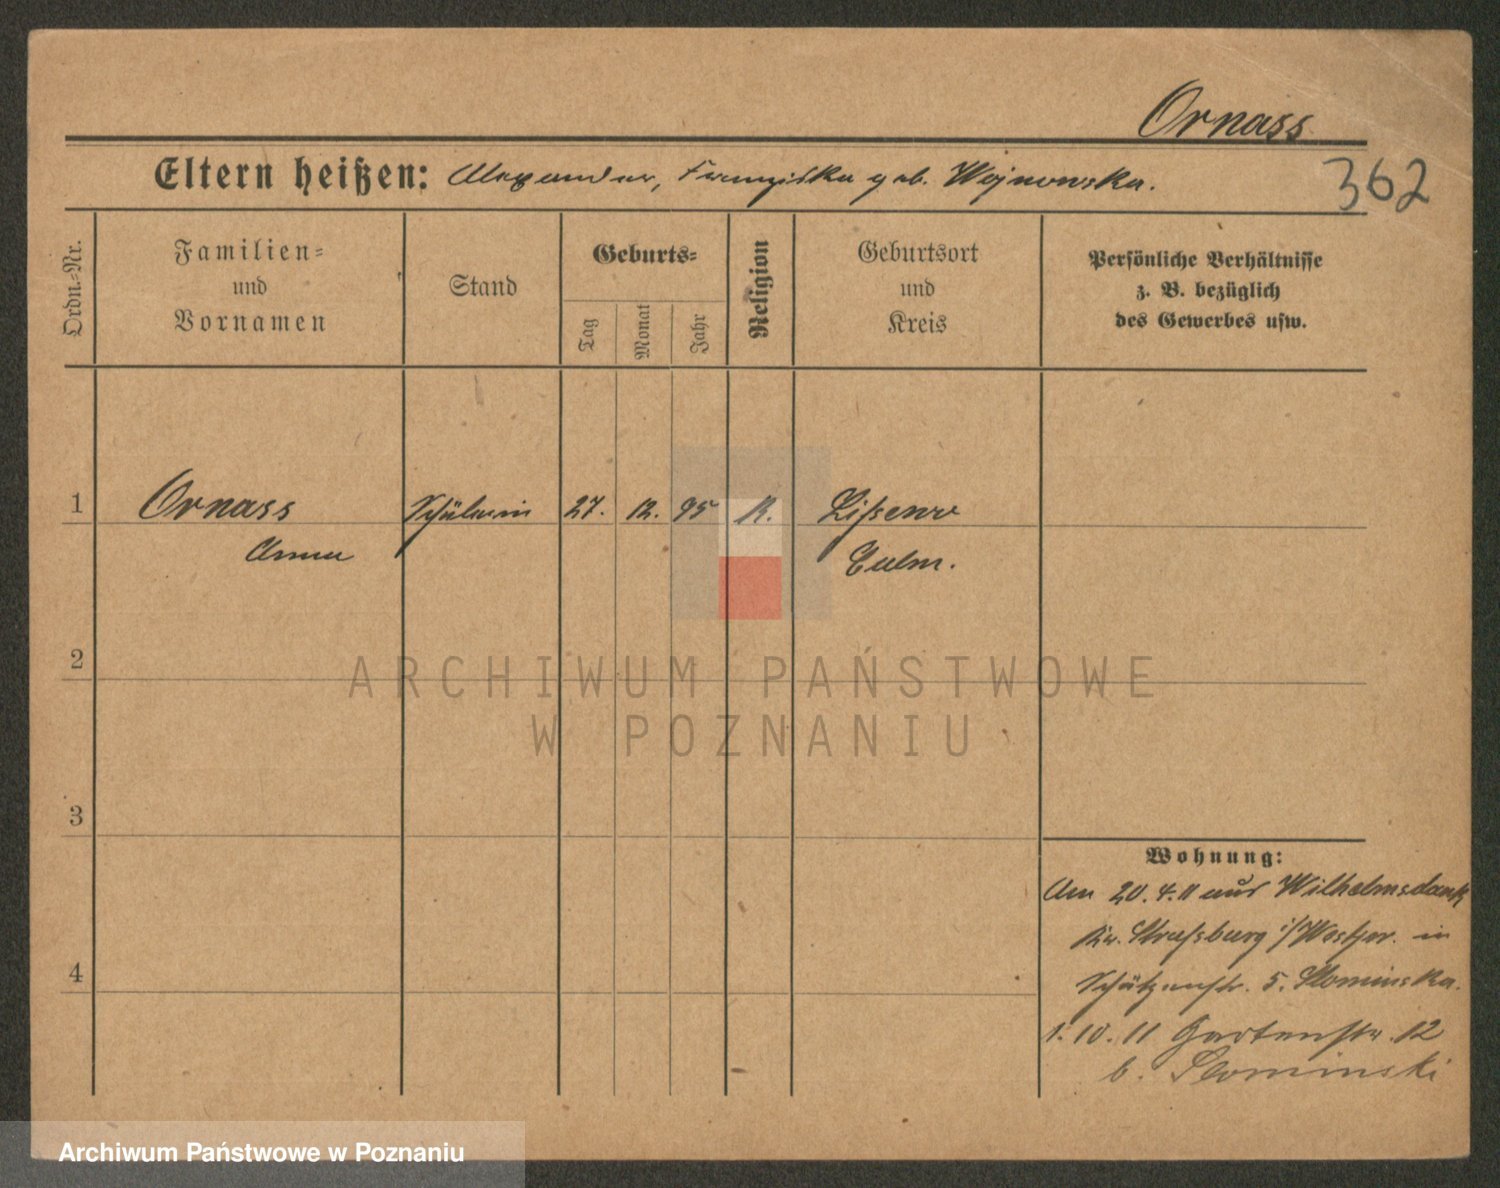 Ornass
Eltern heißen: Alexander, Franziska geb. Wojnowska.
362
Ordn.-Nr.
Familien-
und
Vornamen
Stand
Geburts-
Tag
Monat
Jahr
Religion
Geburtsort
und
Kreis
Persönliche Verhältnisse
z. B. bezüglich
des Gewerbes usw.
1 Ornass Schülerin 27. 12. 95 K. Lißewo
Anna Culm.
2
3
4
Wohnung:
Am 20.4.11 aus Wilhelmsdank
Kr. Straßburg i/Westpr. in
Schützenstr. 5. Slominska.
1.10.11 Gartenstr. 12
b. Slominski
ARCHIWUM PAŃSTWOWE
W POZNANIU
Archiwum Państwowe w Poznaniu